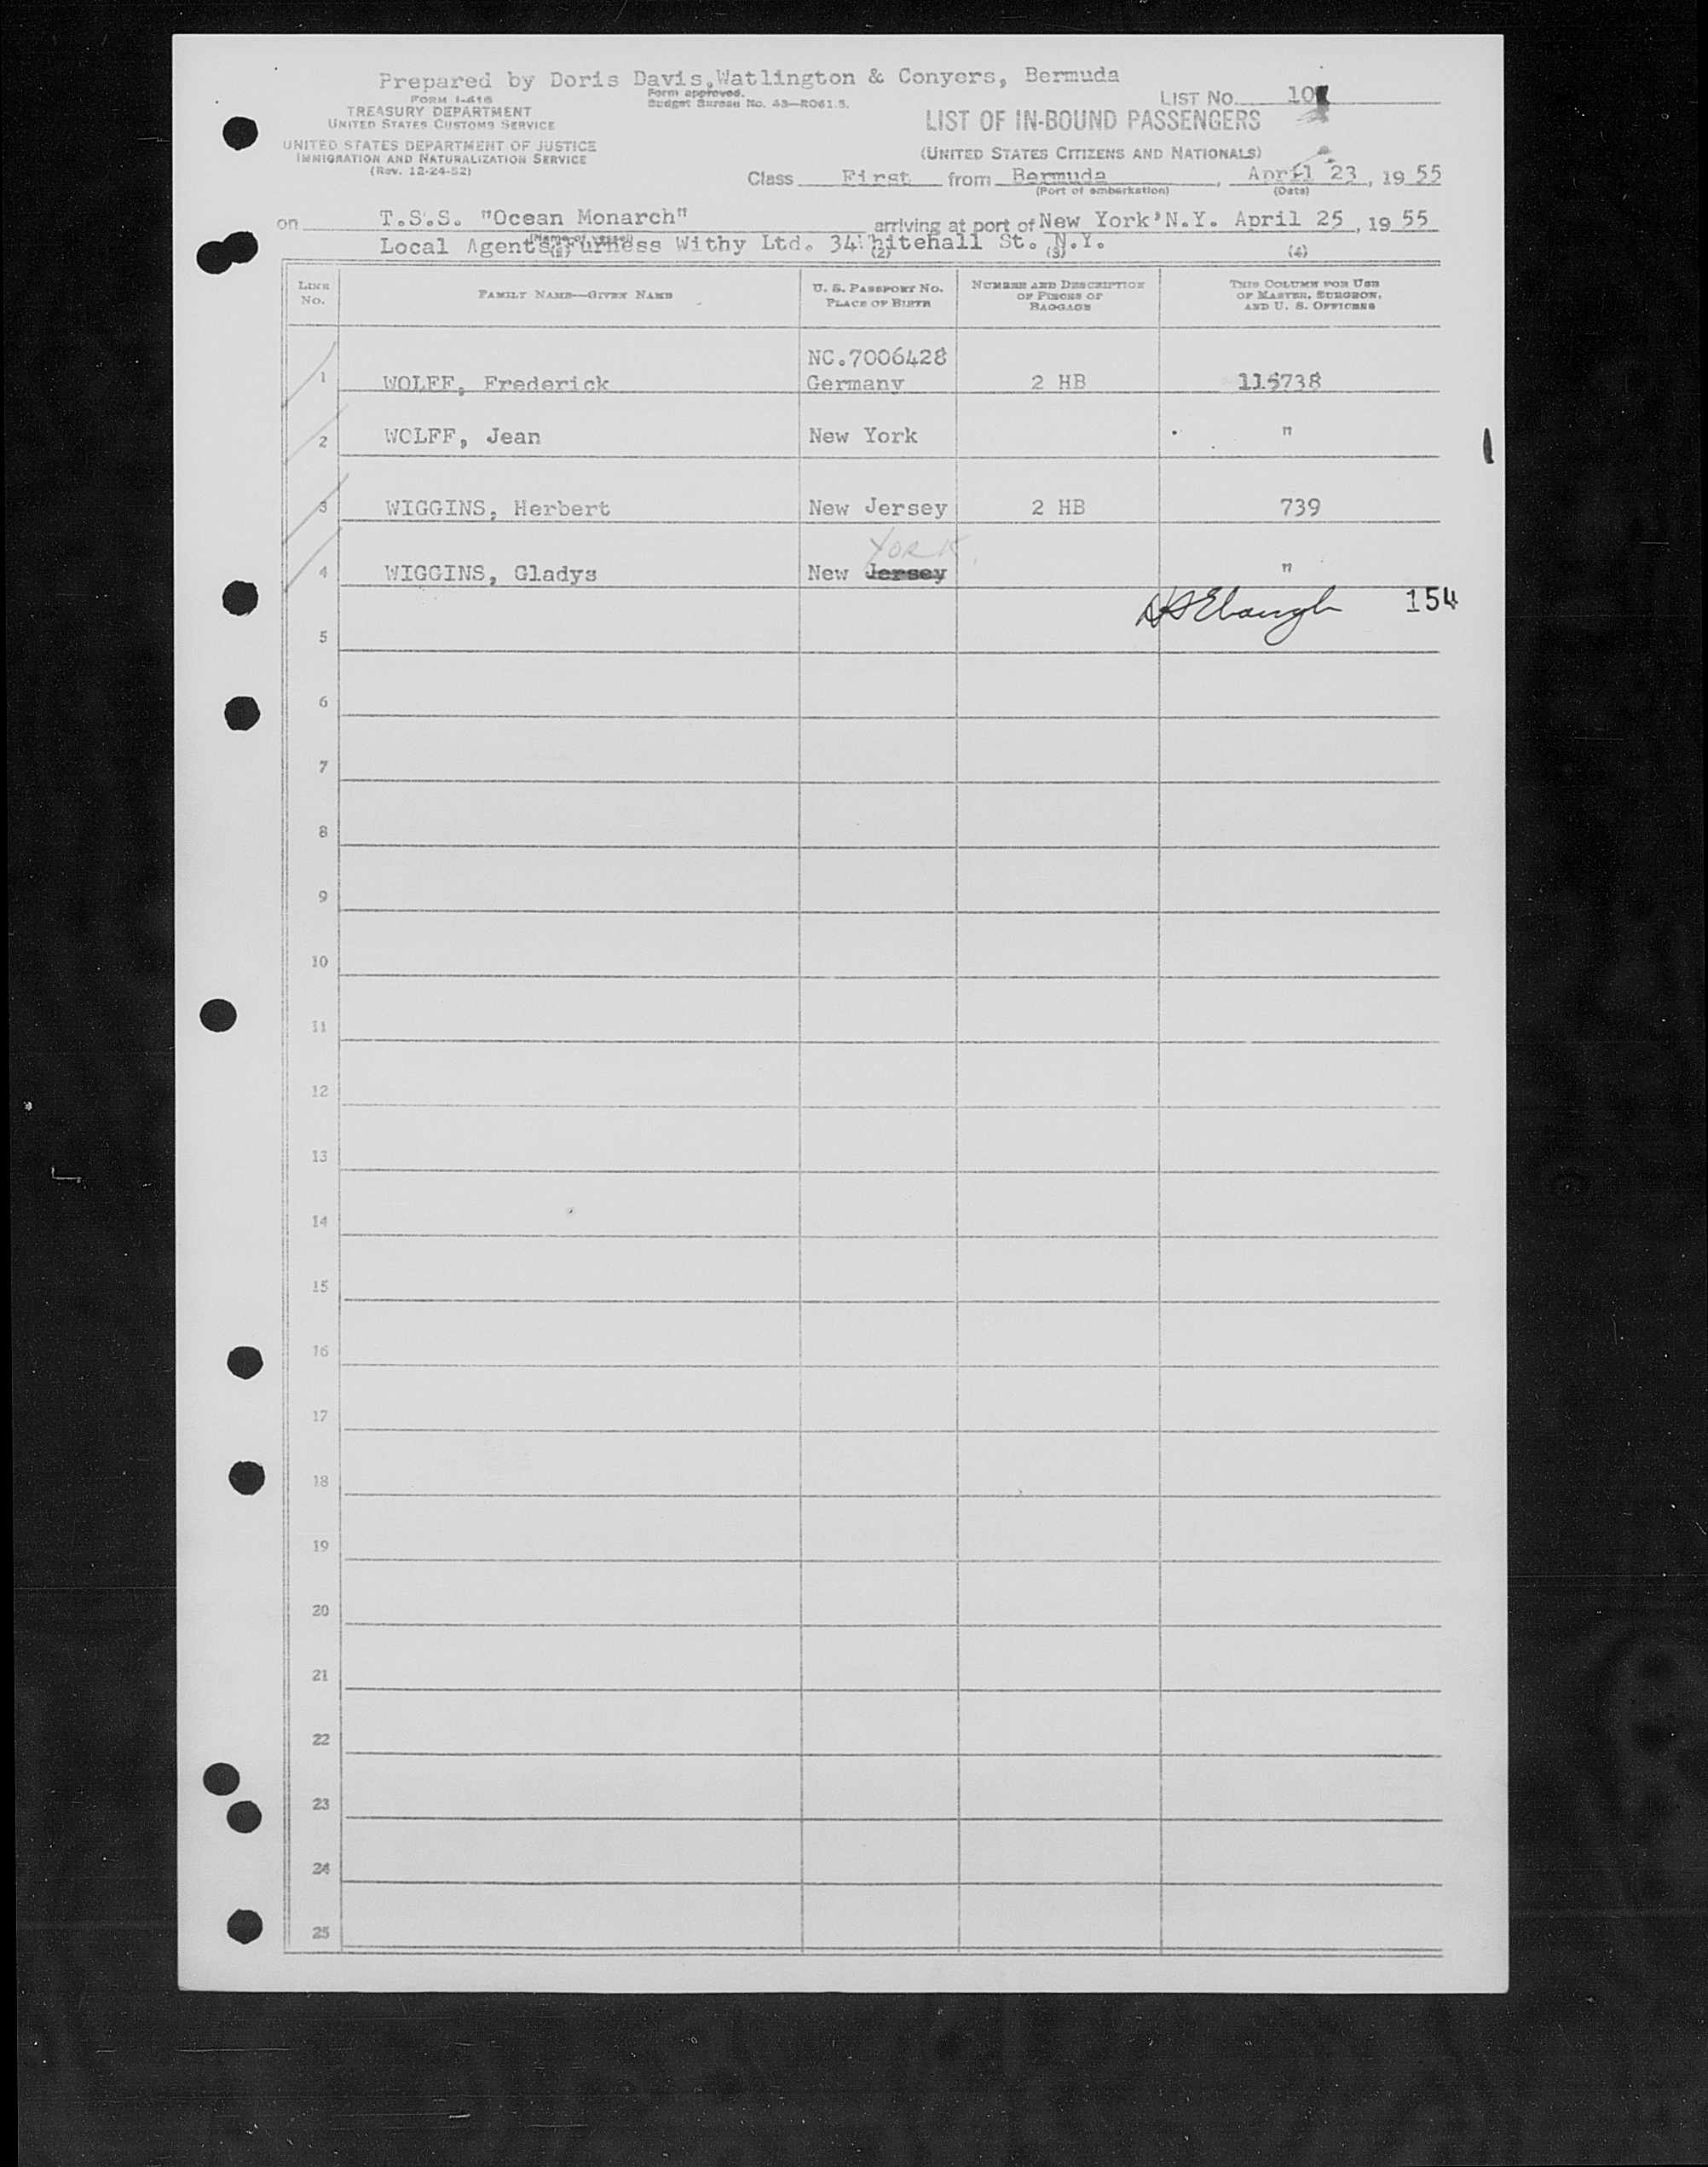 Prepared by Doris Davis, Watlington & Conyers, Bermuda
FORM I-416
TREASURY DEPARTMENT
UNITED STATES CUSTOMS SERVICE
UNITED STATES DEPARTMENT OF JUSTICE
IMMIGRATION AND NATURALIZATION SERVICE
(Rev. 12-24-52)
Form approved.
Budget Bureau No. 43—R061.5.
LIST No. 10
LIST OF IN-BOUND PASSENGERS
(UNITED STATES CITIZENS AND NATIONALS)
Class First from Bermuda, April 23, 19 55
(Port of embarkation) (Date)
on T.S.S. "Ocean Monarch" arriving at port of New York, N.Y. April 25, 19 55
(Name of vessel)
Local Agents Furness Withy Ltd. 34 Whitehall St. N.Y.
(1) (2) (3) (4)
LINE No. FAMILY NAME—GIVEN NAME U. S. PASSPORT No. PLACE OF BIRTH NUMBER AND DESCRIPTION OF PIECES OF BAGGAGE THIS COLUMN FOR USE OF MASTER, SURGEON, AND U. S. OFFICERS
NC.7006428
1 WOLFF, Frederick Germany 2 HB 115738
2 WOLFF, Jean New York "
3 WIGGINS, Herbert New Jersey 2 HB 739
YORK
4 WIGGINS, Gladys New Jersey "
154
5
6
7
8
9
10
11
12
13
14
15
16
17
18
19
20
21
22
23
24
25